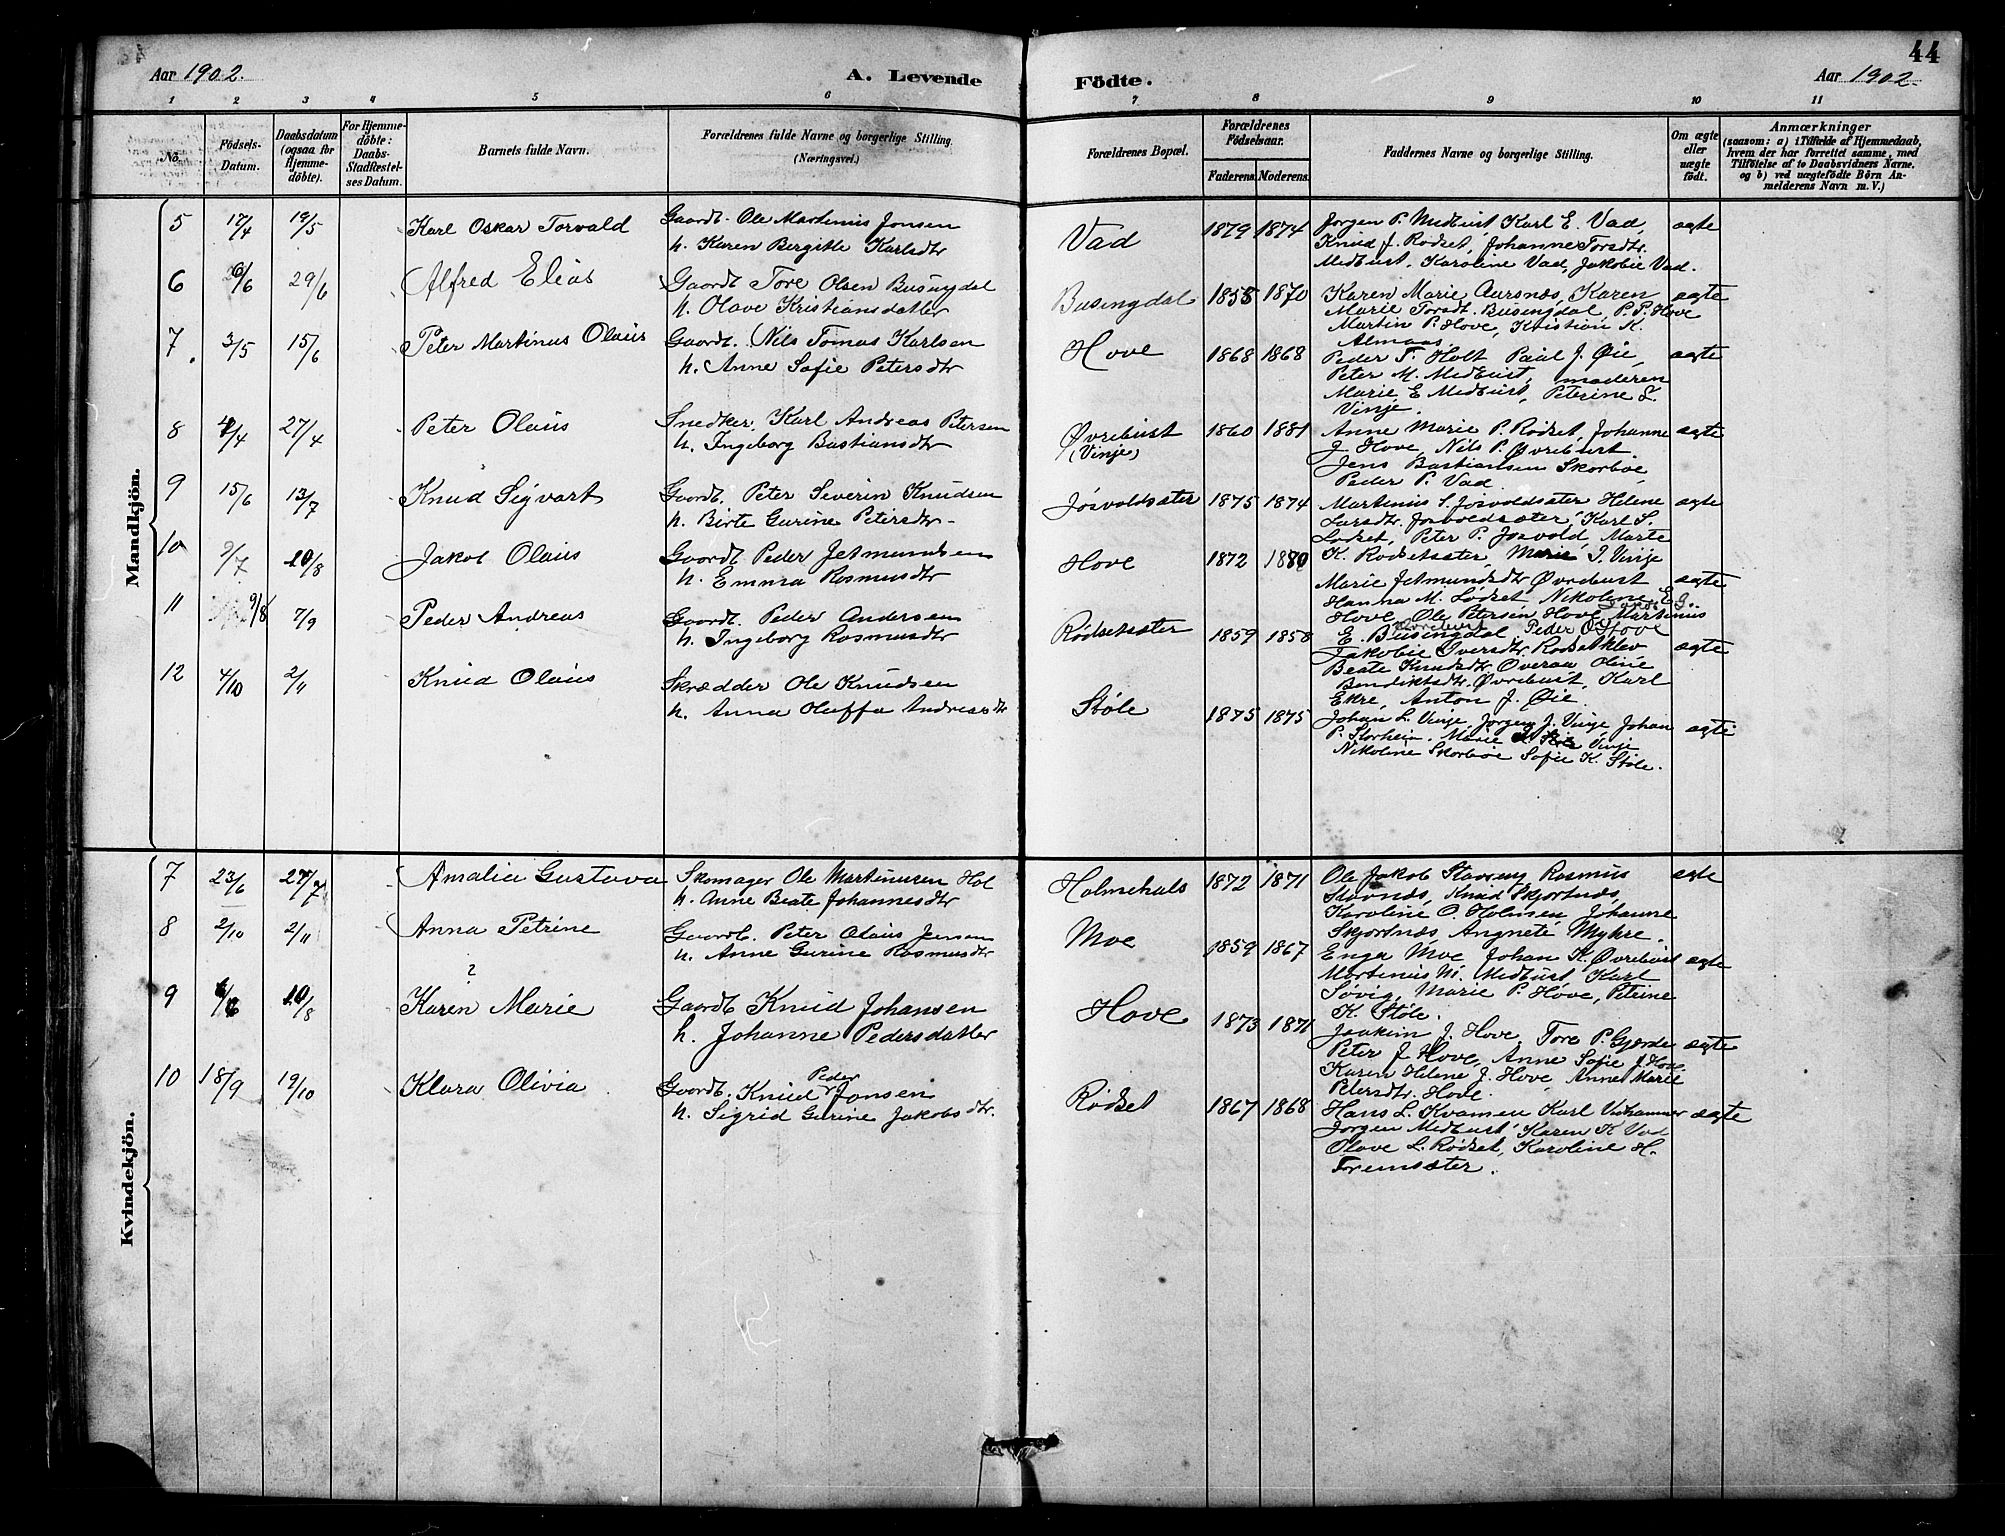 44
Aar 1902. A. Levende Födte. Aar 1902.
1 2 3 4 5 6 7 8 9 10 11
No. Födsels-Datum. Daabsdatum (ogsaa for Hjemme-döbte). For Hjemme-döbte: Daabs-Stadfæstel-ses Datum. Barnets fulde Navn. Forældrenes fulde Navne og borgerlige Stilling. (Næringsvei.) Forældrenes Bopæl. Forældrenes Födselsaar. Faderens. Moderens. Faddernes Navne og borgerlige Stilling. Om ægte eller uægte födt. Anmærkninger (saasom: a) i Tilfælde af Hjemmedaab, hvem der har forrettet samme, med Tilföielse af to Daabsvidners Navne. og b) ved uægtefödte Börn An-melderens Navn m. V.)
Mandkjön.
5 17/4 19/5 Karl Oskar Torvald Gaardb. Ole Martinius Jonsen
h. Karen Bergitte Karlsdtr
Vad 1879 1874 Jørgen P. Medbust, Karl E. Vad, ægte
Knud J. Rødset, Johanne Torsdtr.
Medbust, Karoline Vad, Jakobie Vad.
6 /6 29/6 Alfred Elias Gaardb Tore Olsen Busingdal
h. Olave Kristiansdatter
Busingdal 1858 1870 Karen Marie Aursnes, Karen ægte
Marie Torsdt. Busingdal, P. P. Hove
Martin P. Hove, Kristian K.
Almaas.
7 3/5 15/6 Peter Martinus Olaus Gaardb. Nils Tomas Karlsen
h. Anne Sofie Petersdtr
Hove 1868 1868 Peder T. Holt Paul J. Øie, ægte
Peter M. Medbust, moderen
Marie E Medbust, Peterine L.
Vinje.
8 4/4 27/4 Peter Olaus Snedker. Karl Andreas Petersen
h. Ingeborg Bastiansdtr
Øvrebust (Vinje) 1860 1881 Anne Marie P. Rødset, Johanne ægte
J. Hove, Nils P. Øvrebust.
Jens Bastiansen Skorbøe,
Peder P. Vad.
9 15/6 13/7 Knud Sigvart Gaardb. Peter Severin Knudsen
h. Birte Gurine Petersdtr
Josvoldsæter 1875 1874 Martinius S. Josvoldsæter Helene ægte
Larsdtr. Josvoldsæter, Karl S.
Lødset, Peter P. Josvold, Marte
K. Rødsetsæter, Marie J. Vinje
10 9/7 10/8 Jakob Olaus Gaardb Peder Jetmundsen
h. Emma Rasmusdtr
Hove 1872 1880 Marie Jetmundsdtr Øvrebust ægte
Hanna M. Lødset, Nikoline E. G.
Hove, Ole Petersen Hove, Martinius
E. Busingdal, Peder O. Hove
11 9/8 7/9 Peder Andreas Gaardb. Peder Andersen
h. Ingeborg Rasmusdtr
Rødsetsæter 1859 1858 Jakobie Iversdtr. Rødseteklev ægte
Beate Knudsdtr. Overaa Oline
Bendiktsdtr. Øvrebust, Karl
Ekre, Anton J. Øie.
12 4/10 2/11 Knud Olaus Skrædder Ole Knudsen
h. Anna Oluffa Andreasdtr
Støle 1875 1875 Johan L. Vinje, Jørgen J. Vinje, Johan ægte
P. Storheim. Marie Vinje
Nikoline Skorbøe Sofie K. Støle.
Kvindekjön.
7 23/6 27/7 Amalia Gustava Skomager Ole Martinusen Hol
h. Anne Beate Johannesdtr
Holmehals 1872 1871 Ole Jakob Stavseng Rasmus ægte
Stavnæs, Knud Skjortnæs,
Karoline O. Holmsen, Johanne
Skjortnæs, Angnete Myhre.
8 2/10 2/11 Anna Petrine Gaardb. Peter Olaus Jensen
h. Anne Gurine Rasmusdtr
Moe 1859 1867 Enga Moe, Johan K. Øvrebust ægte
Martinius M. Medbust, Karl
Søvig, Marie P. Hove, Petrine
K. Støle.
?
9 6/6 10/8 Karen Marie Gaardb Knud Johansen
h. Johanne Pedersdatter
Hove 1873 1871 Joakim J. Hove, Tore P. Gjerde ægte
Peter J Hove, Anne Sofie J Hove
Karen Helene J. Hove, Anne Marie
Petersdtr. Hove.
10 18/9 19/10 Klara Olivia Gaardb. Knud Peder Jonsen
h. Sigrid Gurine Jakobsdtr.
Rødset 1867 1868 Hans L. Kvamen Karl Vadhammer ægte
Jørgen Medbust, Karen K Vad
Olave L. Rødset, Karoline H.
Toremsæter.